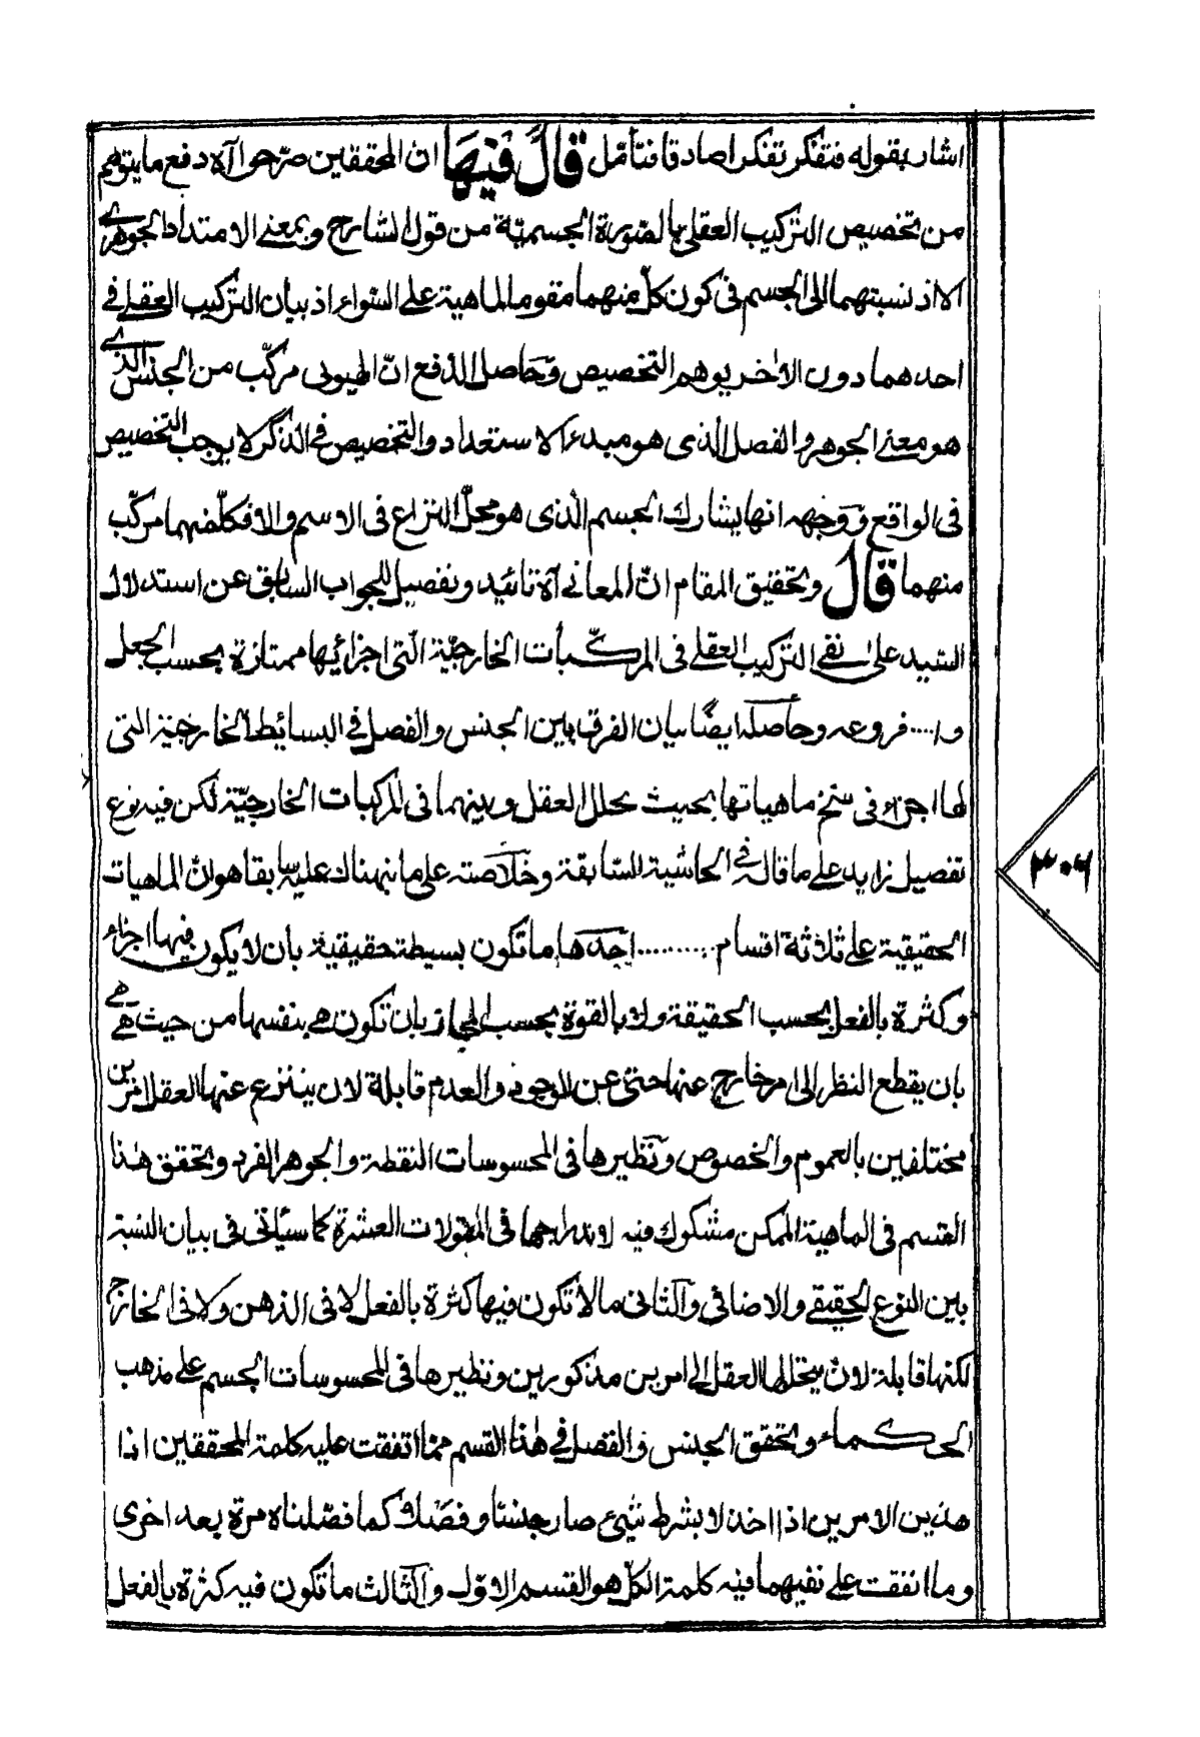 اشار بقوله فتفكر تفكرا صادقا فتأمّل قال فيها ان المحققين صرّحوا آه دفع ما يتوهم
من تخصيص التركيب العقلي بالصّورة الجسميّة من قول الشارح وبمعنى الامتداد الجوهرى
الا اذ نسبتهما الى الجسم فى كون كلّ منهما مقوما لماهية على السّواء اذ بيان التركيب العقلى فى
احدهما دون الأخر يوهم التخصيص وحاصل الدّفع انّ الهيولى مركّب من الجنس الذى
هو معنى الجوهر والفصل الذى هو مبدء الاستعداد والتخصيص فى الذّكر لا يوجب التخصيص
فى الواقع ووجهه انها يشارك الجسم الّذى هو محلّ النزاع فى الاسم والا فكلّ منهما مركّب
منهما قال وتحقيق المقام انّ المعانى آه تائيد وتفصيل للجواب السابق عن استدلال
السّيد على نفى التركيب العقلى فى المركّبات الخارجيّة الّتى اجزائها ممتازة بحسب الجعل
وا.... فروعه وحاصله ايضًا بيان الفرق بين الجنس والفصل فى البسائط الخارجيّة التى
لها اجزاء فى سنخ ماهياتها بحيث يحلل العقل وبينهما فى المركبات الخارجيّة لكن فيه نوع
تفصيل زايد على ما قاله فى الحاشية السّابقة وخلاصته على ما نبهناك عليه سابقا هو انّ الماهيات
الحقيقية على ثلاثة اقسام .......... احدها ما تكون بسيطة حقيقية بان لا يكون فيها اجزاء
وكثرة بالفعل بحسب الحقيقة ولا بالقوة بحسب المجاز بان تكون هى بنفسها من حيث هى هى
بان يقطع النظر الى امر خارج عنها حتى عن الوجود والعدم قابلة لان ينتزع عنها العقل امرين
مختلفين بالعموم والخصوص ونظيرها فى المحسوسات النقطة والجوهر الفرد وتحقق هذا
القسم فى الماهية الممكن مشكوك فيه لاندراجها فى المقولات العشرة كما سيأتى فى بيان النسبة
بين النوع الحقيقى والاضافى والثانى ما لا تكون فيها كثرة بالفعل لا فى الذهن ولا فى الخارج
لكنها قابلة لان يحللها العقل الى امرين مذكورين ونظيرها فى المحسوسات الجسم على مذهب
الحكماء وتحقق الجنس والفصل فى هذا القسم ممّا اتفقت عليه كلمة المحققين اذا
هذين الامرين اذا اخذ لا بشرط شيئ صار جنسًا وفصلا كما فصّلناه مرة بعد اخرى
وما انفقت على نفيهما فيه كلمة الكلّ هو القسم الاوّل والثّالث ما تكون فيه كثرة بالفعل
٣٠٦